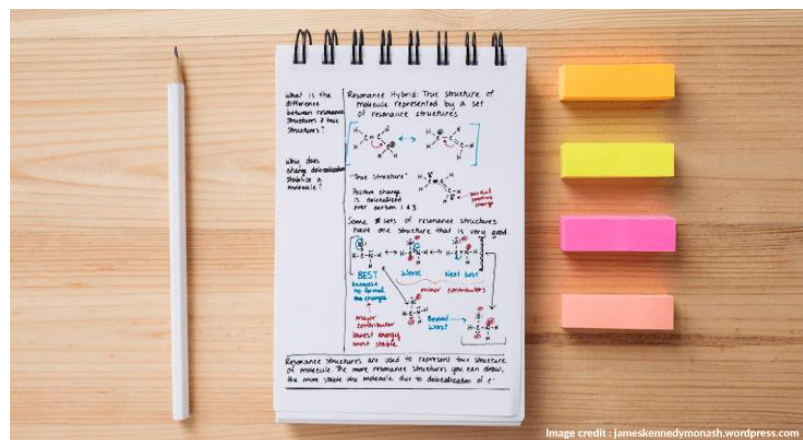 What is the
difference
between resonance
structures & true
structures?
Why does
charge delocalization
stabilize a
molecule?
Resonance Hybrid: True structure of
molecule represented by a set
of resonance structures
"True Structure"
Positive charge
is delocalized
over carbon 1 & 3
partial
positive
charge
Some sets of resonance structures
have one structure that is very good
BEST
because
no formal
charges
Worse
Next best
minor contributors
major
contributor
lowest energy
most stable
Beyond
Worst
Resonance structures are used to represent true structure
of molecule. The more resonance structures you can draw,
the more stable the molecule due to delocalization of e-
Image credit : jameskennedymonash.wordpress.com